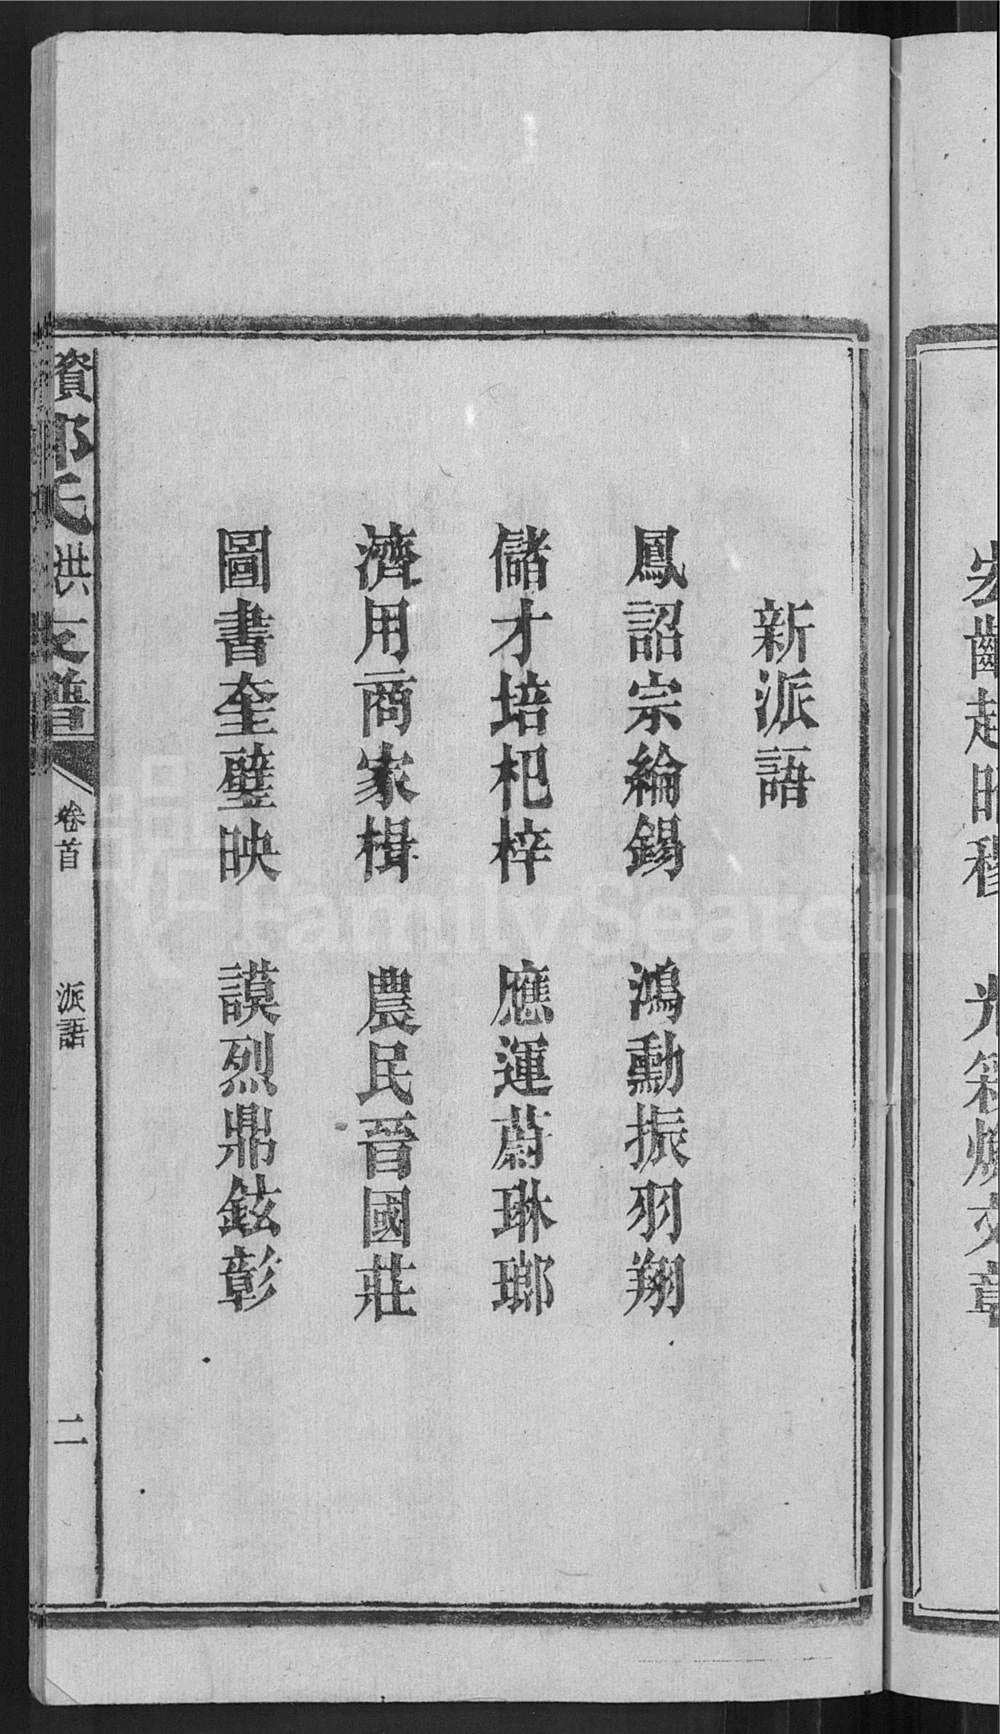 光籍煥文章
新派語
鳳詔宗綸錫 鴻勳振羽翔
儲才培杞梓 應運蔚琳瑯
濟用商家楫 農民晉國莊
圖書奎璧映 謨烈鼎鉉彰
資邵氏洪支譜 卷首 派語 二
FamilySearch